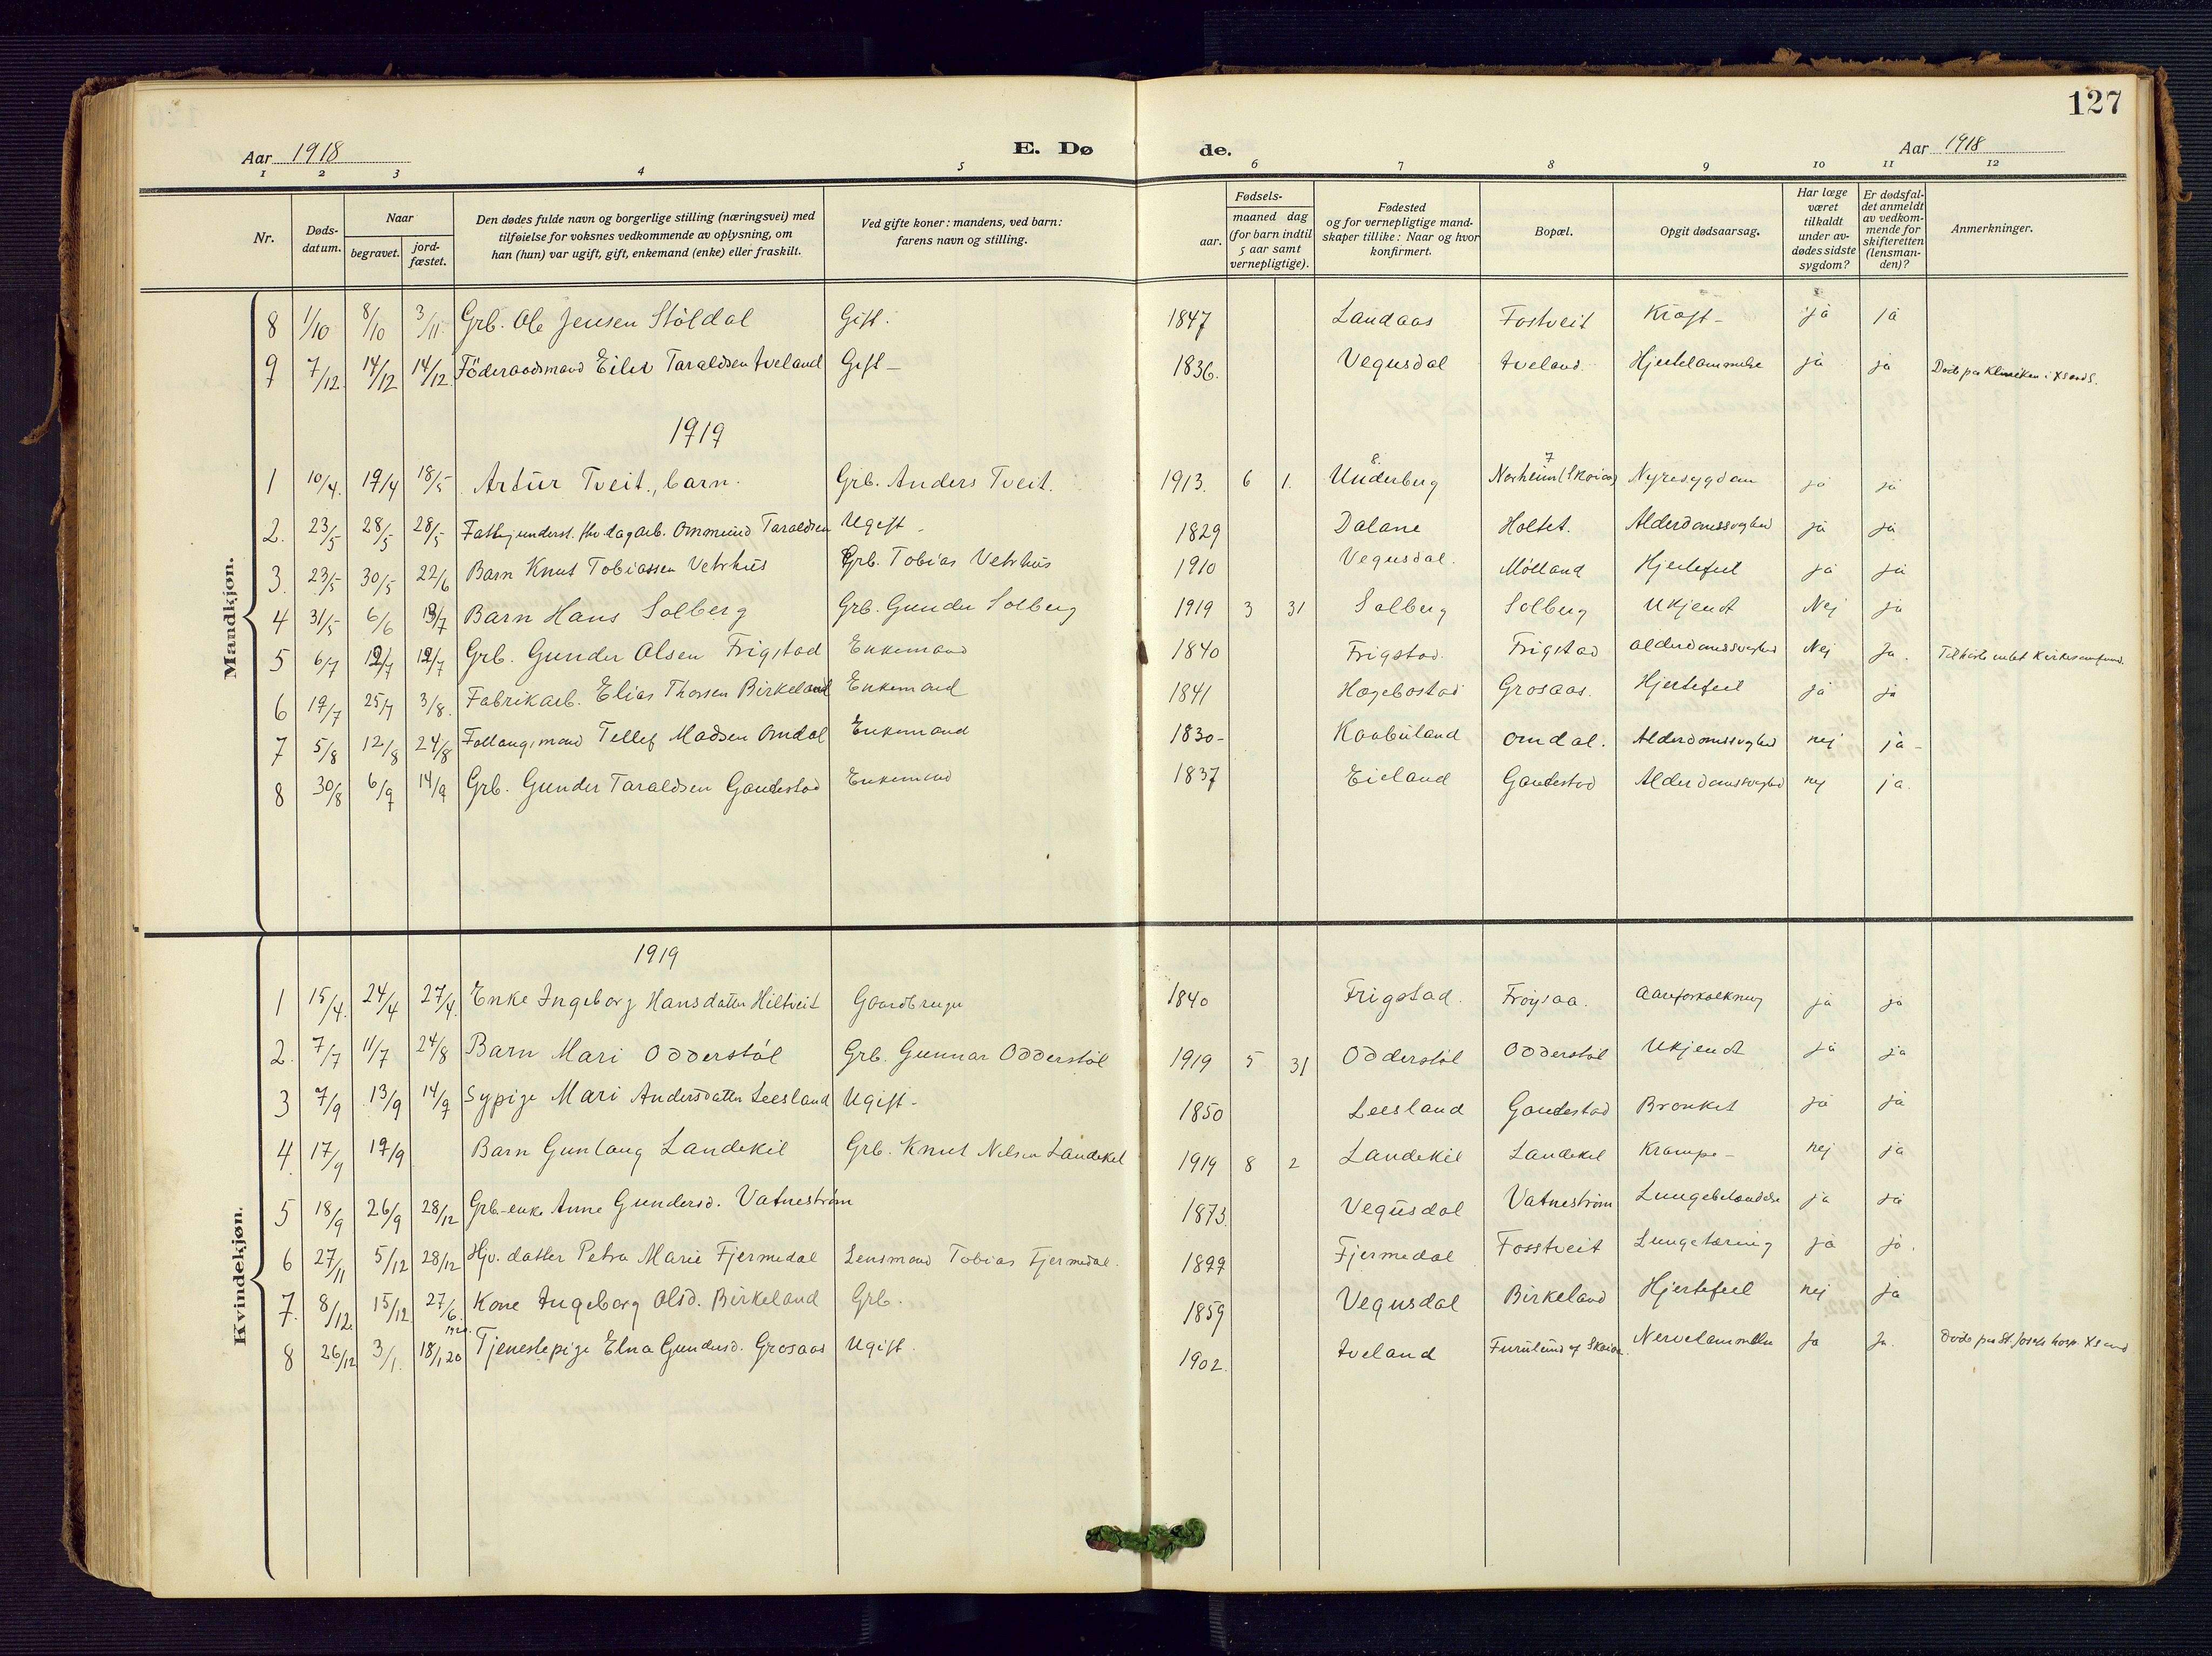 127
Aar 1918 E. Dø de. Aar 1918
1 2 3 4 5 6 7 8 9 10 11 12
Nr. Døds-datum. Naar begravet. jord-fæstet. Den dødes fulde navn og borgerlige stilling (næringsvei) med tilføielse for voksnes vedkommende av oplysning, om han (hun) var ugift, gift, enkemand (enke) eller fraskilt. Ved gifte koner: mandens, ved barn: farens navn og stilling. Fødsels- aar. maaned dag (for barn indtil 5 aar samt vernepligtige). Fødested og for vernepligtige mand-skaper tillike: Naar og hvor konfirmert. Bopæl. Opgit dødsaarsag. Har læge været tilkaldt under av-dødes sidste sygdom? Er dødsfal-det anmeldt av vedkom-mende for skifteretten (lensman-den)? Anmerkninger.
Mandkjøn.
8 1/10 8/10 3/11 Grb. Ole Jensen Stöldal Gift. 1847 Landaas Fostveit Kræft - ja ja
9 7/12. 14/12 14/12 Föderaadsmand Eilev Taraldsen Aveland Gift - 1836. Vegusdal Aveland Hjertelammelse ja ja Døde paa Kliniken i Xsands.
1919
1 10/4. 17/4 18/5 Artur Tveit, barn. Grb. Anders Tveit. 1913. 6 1. 8. Underberg 7 Norheim (Skoias) Nyresygdom ja ja
2. 23/5 28/5 28/5 dagarb. Ommund Taraldsen Ugift - 1829 Dalane Holtet. Alderdomssvaghed ja ja
3. 23/5 30/5 22/6 Barn Knut Tobiassen Vehrhus Grb. Tobias Vehrhus 1910 Vegusdal. Mölland Hjertefeil ja ja
4 31/5 6/6 13/7 Barn Hans Solberg Grb. Gunder Solberg 1919 3 31 Solberg Solberg Ukjendt Nej ja
5 6/7 12/7 12/7 Grb. Gunder Olsen Frigstad Enkemand 1840 Frigstad. Frigstad alderdomssvaghed Nej Ja. Tilhørte intet Kirkesamfund.
6 19/7 25/7 3/8. Fabrikarb. Elias Thorsen Birkeland Enkemand 1841 Hægebostad Grosaas. Hjertefeil ja ja
7 5/8 12/8 24/8 Tellef Madsen Omdal Enkemand 1830- Kaabuland Omdal. Alderdomssvaghed nej ja -
8 30/8 6/9 14/9 Grb. Gunder Taraldsen Gaudestad Enkemand 1837 Eieland Gaudestad Alderdomssvaghed nej ja.
Kvindekjøn.
1919
1 15/4. 24/4 27/4. Enke Ingeborg Hansdatter Hiltveit Gaardbruger 1840 Frigstad. Fröysaa. Aareforkalkning ja ja
2. 7/7 11/7 24/8 Barn Mari Odderstöl Grb. Gunnar Odderstöl 1919 5 31 Odderstöl Odderstöl Ukjendt ja ja
3 7/9 13/9 14/9 Sypige Mari Andersdatter Leesland Ugift - 1850 Leesland Gaudestad Bronkit ja ja
4. 17/9 19/9 Barn Gunlaug Landekil Grb. Knut Nilsen Landekil 1919 8 2 Landekil Landekil Krampe - nej ja
5 18/9 26/9 28/12 Grb-enke Anne Gundersd. Vatneström 1873. Vegusdal Vatneström Lungebetændelse ja ja
6 27/11 5/12 28/12 Hjv. datter Petra Marie Fjermedal Lensmand Tobias Fjermedal. 1899 Fjermedal Fosstveit Lungetæring ja ja.
7. 8/12. 15/12 27/6. 1920. Kone Ingeborg Olsd. Birkeland Grb. 1859 Vegusdal Birkeland Hjertefeil nej ja
8 26/12 3/1. 18/1 20 Tjenestepige Elna Gundersd. Grosaas Ugift. 1902. Aveland Furulund af Skoias. Nervelammelse Ja Ja. Døde paa St. Josefs hosp. Xsand